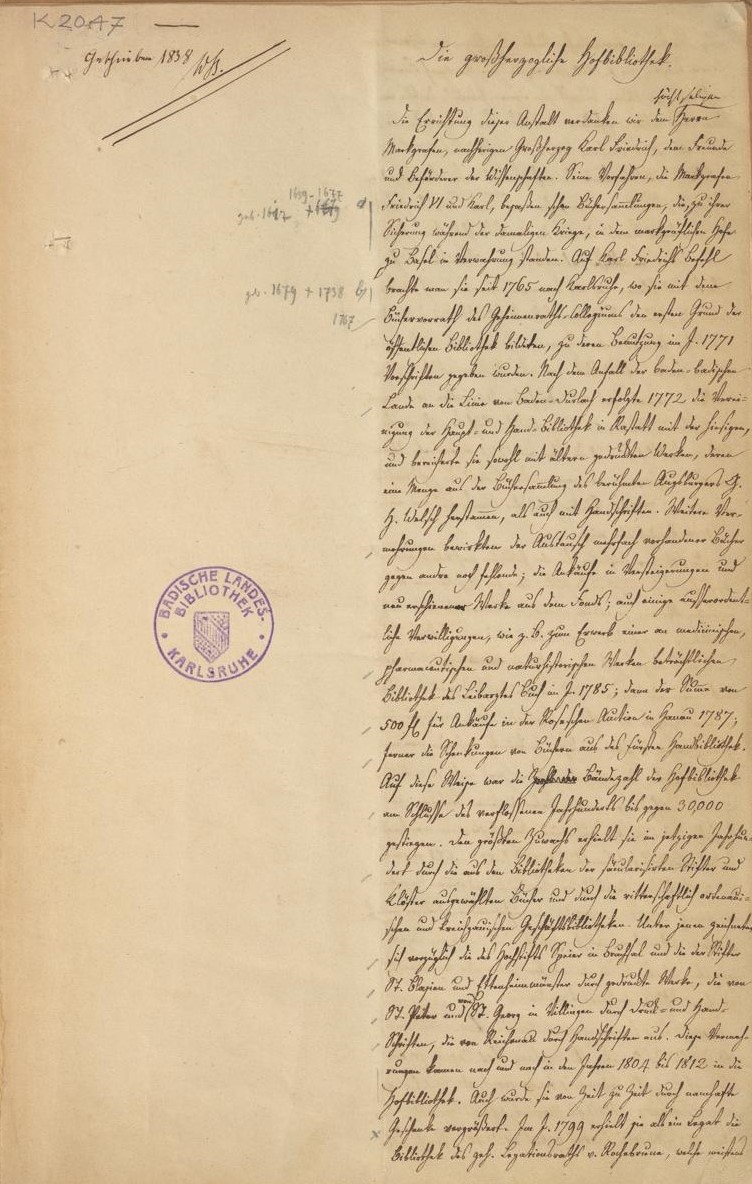 K 2047
Geschrieben 1838
Die großherzogliche Hofbibliothek.
höchstseligen
Die Errichtung dieser Anstalt verdanken wir dem Herrn
Markgrafen, nachherigen Großherzog Karl Friedrich, dem Freunde
und Beförderer der Wissenschaften. Seine Vorfahren, die Markgrafen
1659-1677
geb. 1617 +
Friedrich VI und Karl, besaßen schon Büchersammlungen, die, zu ihrer
Sicherung während der damaligen Kriege, in dem markgräflichen Hofe
zu Basel in Verwahrung standen. Auf Karl Friedrichs Befehl
geb. 1679 + 1738 b)
brachte man sie seit 1765 nach Karlsruhe, wo sie mit dem
1767
Büchervorrath des Geheimenraths-Collegiums den ersten Grund der
öffentlichen Bibliothek bildeten, zu deren Benutzung im J. 1771
Vorschriften gegeben wurden. Nach dem Anfall der baden-badischen
Lande an die Linie von Baden-Durlach erfolgte 1772 die Verei-
nigung der Haupt- und Hand-Bibliothek in Rastatt mit der hiesigen,
und bereicherte sie sowohl mit ältern gedruckten Werken, deren
eine Menge aus der Büchersamlung des berühmten Augsburgers G.
H. Welsch herstammen, als auch mit Handschriften. Weitere Ver-
mehrungen bewirkten der Austausch mehrfach vorhandener Bücher
gegen andre noch fehlende; die Ankäufe in Versteigerungen und
neu erschienener Werke aus dem Fonds; auch einige ausserordent-
liche Verwilligungen, wie z. B. zum Erwerb einer an medicinischen,
pharmaceutischen und naturhistorischen Werken beträchtlichen
Bibliothek des Leibarztes Buch im J. 1785; dann der Summe von
500 fl für Ankäufe in der Roseschen Auction in Hanau 1787;
ferner die Schenkungen von Büchern aus des Fürsten Handbibliothek.
Auf diese Weise war die Bändezahl der Hofbibliothek
am Schlusse des verflossenen Jahrhunderts bis gegen 30,000
gestiegen. Den größten Zuwachs erhielt sie im jetzigen Jahrhun-
dert durch die aus den Bibliotheken der säcularisirten Stifter und
Klöster ausgewählten Bücher und durch die ritterschaftlich ortenaui-
schen und kreichgauischen Geschäftsbibliotheken. Unter jenen zeichneten
sich vorzüglich die des Hochstifts Speier in Bruchsal und die der Stifter
St. Blasien und Ettenheimmünster durch gedruckte Werke, die von
St. Peter und von St. Georg in Villingen durch Druck- und Hand-
Schriften, die von Reichenau durch Handschriften aus. Diese Vermeh-
rungen kamen nach und nach in den Jahren 1804 bis 1812 in die
Hofbibliothek. Auch wurde sie von Zeit zu Zeit durch namhafte
Geschenke vergrößert. Im J. 1799 erhielt sie als ein Legat die
Bibliothek des geh. Legationsraths v. Rochebrune, welche meistens
BADISCHE LANDES-
BIBLIOTHEK
KARLSRUHE